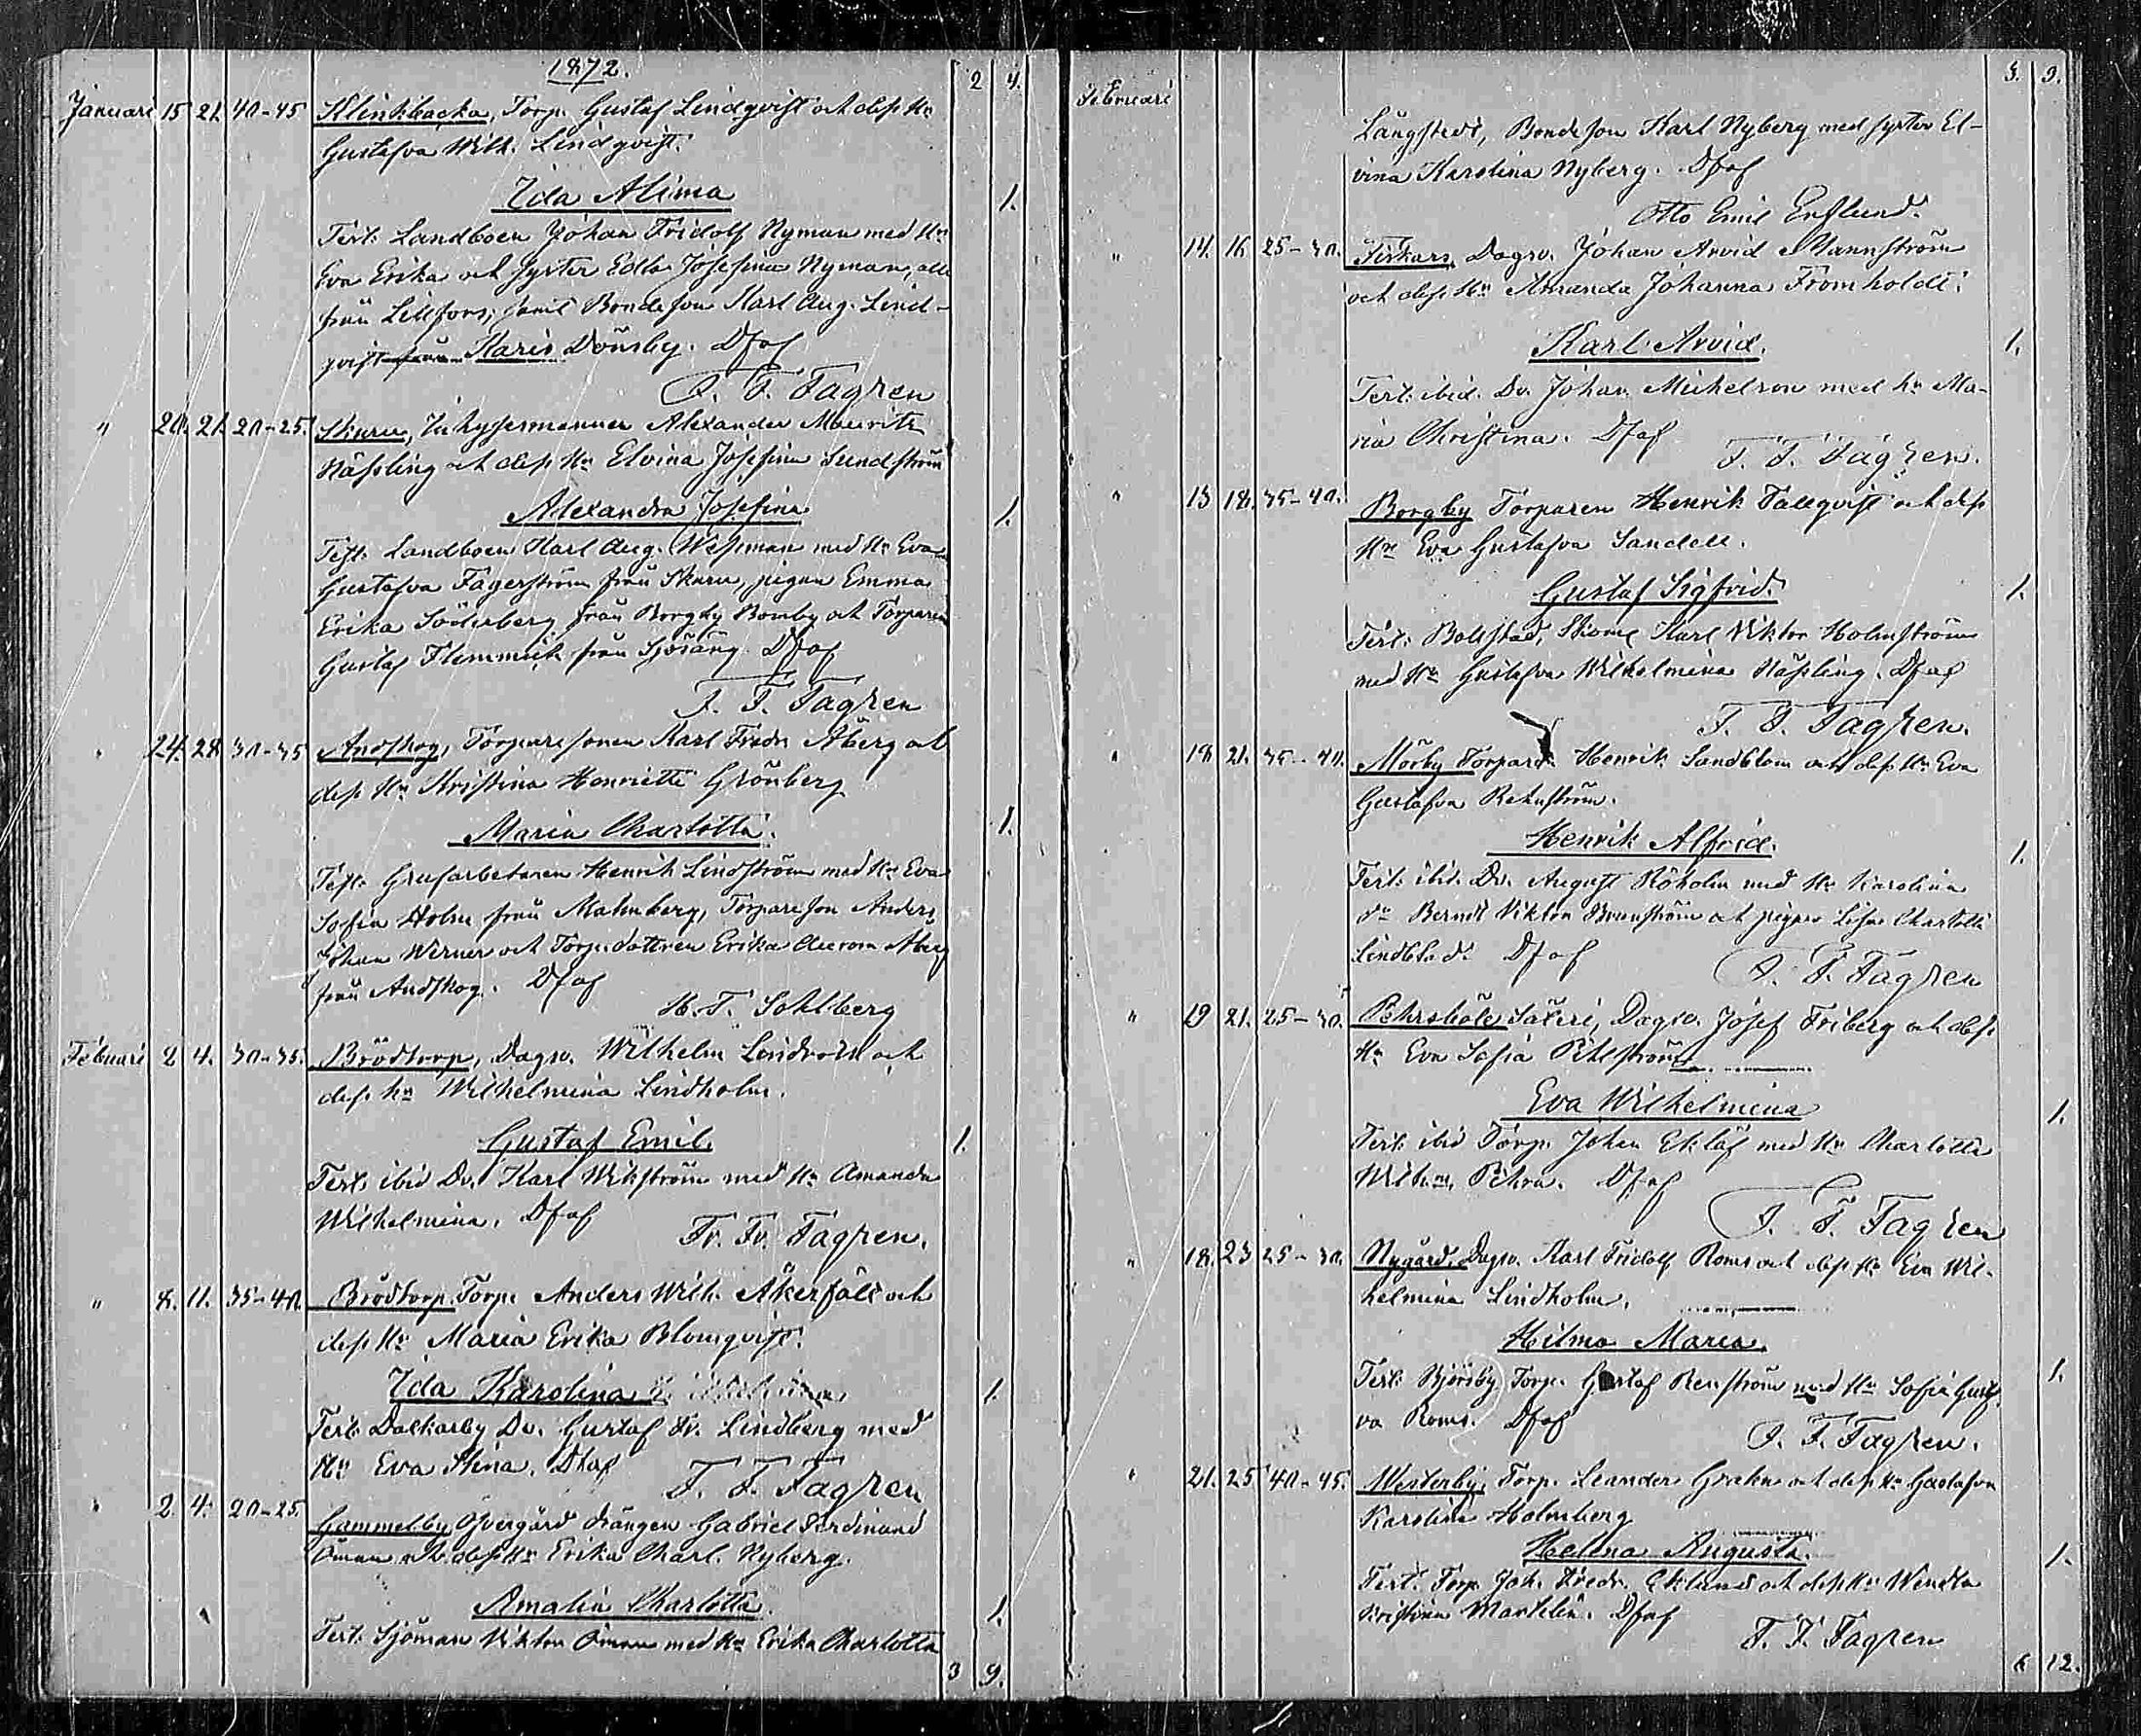 1872.
2 4.
Januari 15 21. 40-45 Klinkbacka, Torp. Gustaf Lindqvist och dess Hu
Gustafva Wilh. Lindqvist.
Ida Alina 1.
Test: Landboen Johan Fridolf Nyman med Hu
Eva Erika och syster Edla Josefina Nyman, alla
från Lillfors; samt Bondeson Karl Aug. Lind-
qvist från Karis Dönsby. Dfaf
F. F. Fagren
" 20. 21. 20-25. Skuru, Inhysesmannen Alexander Mauritz
Hässling och dess Hu Elvina Josefina Sundström
Alexandra Josefina 1.
Test. Landboen Karl Aug. Wessman med Hu Eva
Gustafva Fagerström från Skuru, pigan Emma
Erika Söderberg från Borgby Bomby och Torparen
Gustaf Flemmich från Sjösäng. Dfaf
F. F. Fagren
" 24. 28 30-35 Andskog, Torparesonen Karl Fredr. Åberg och
dess Hu Kristina Henrietta Grönberg
Maria Charlotta. 1.
Test. Grufarbetaren Henrik Lindström med Hu Eva
Sofia Holm från Malmberg, Torpareson Anders
Johan Werner och Torp.dottren Erika Aurora Åberg
från Andskog. Dfaf
H. F. Sohlberg
Februari 2 4. 30-35. Brödtorp, Dagsv. Wilhelm Lindroos och
dess hu Wilhelmina Lindholm.
Gustaf Emil. 1.
Test. ibid Dv. Karl Wikström med Hu Amanda
Wilhelmina. Dfaf
Fr. Fr. Fagren.
" 8. 11. 35-40. Brödtorp. Torp. Anders Wilh. Åkerfält och
dess Hu Maria Erika Blomqvist.
Ida Karolina 1.
Test. Dalkarby Dv. Gustaf Fr. Lindberg med
Hu Eva Stina. Dfaf
F. F. Fagren
" 2. 4. 20-25. Gammelby Öfvergård drängen Gabriel Ferdinand
Öman och dess Hu Erika Charl. Nyberg.
Amalia Charlotta. 1.
Test. Sjöman Viktor Öman med Hu Erika Charlotta
3 9.
Februari 3. 9.
Långstedt, Bondeson Karl Nyberg med syster El-
vina Karolina Nyberg. Dfaf
Otto Emil Enflund.
" 14. 16. 25-30. Fiskars, Dagsv. Johan Arvid Mannström
och dess Hu Amanda Johanna Fromholdt.
Karl Arvid. 1.
Test. ibid. Dv. Johan Michelson med hu Ma-
ria Christina. Dfaf
F. F. Fagren.
" 13 18. 35-40. Borgby Torparen Henrik Fallqvist och dess
Hu Eva Gustafva Sandell.
Gustaf Sigfrid. 1.
Test. Bollstad, Skom. Karl Viktor Holmström
med Hu Gustafva Wilhelmina Hässling. Dfaf
F. F. Fagren.
" 18 21. 35-40. Mörby Torparen Henrik Sandblom och dess Hu Eva
Gustafva Rehnström.
Henrik Alfrid. 1.
Test. ibid. Dv. August Röholm med Hu Karolina
Berndt Viktor Brunström och pigan Lisa Charlotta
Lindblad. Dfaf
F. F. Fagren
" 19 21. 25-30. Pehrsböle Säteri, Dagsv. Josef Friberg och dess
Hu Eva Sofia Pihlström.
Eva Wilhelmina 1.
Test. ibid Torp. Johan Eklöf med Hu Charlotta
Wilh. Dfaf
F. F. Fagren
" 18. 23 25-30. Nygård, Dagsv. Karl Fridolf Roms och dess Hu Eva Wil-
helmina Lindholm.
Hilma Maria. 1.
Test. Björsby Torp. Gustaf Renström med Hu Sofia Gustaf
va Roms. Dfaf
F. F. Fagren.
" 21. 25 40-45. Westerby, Torp. Leander Grahn och dess Hu Gustafva
Karolina Holmberg
Helena Augusta. 1.
Test. Torp. Joh. Fredr. Eklund och dess Hu Wendla
Kristina Martelin. Dfaf
F. F. Fagren
6 12.